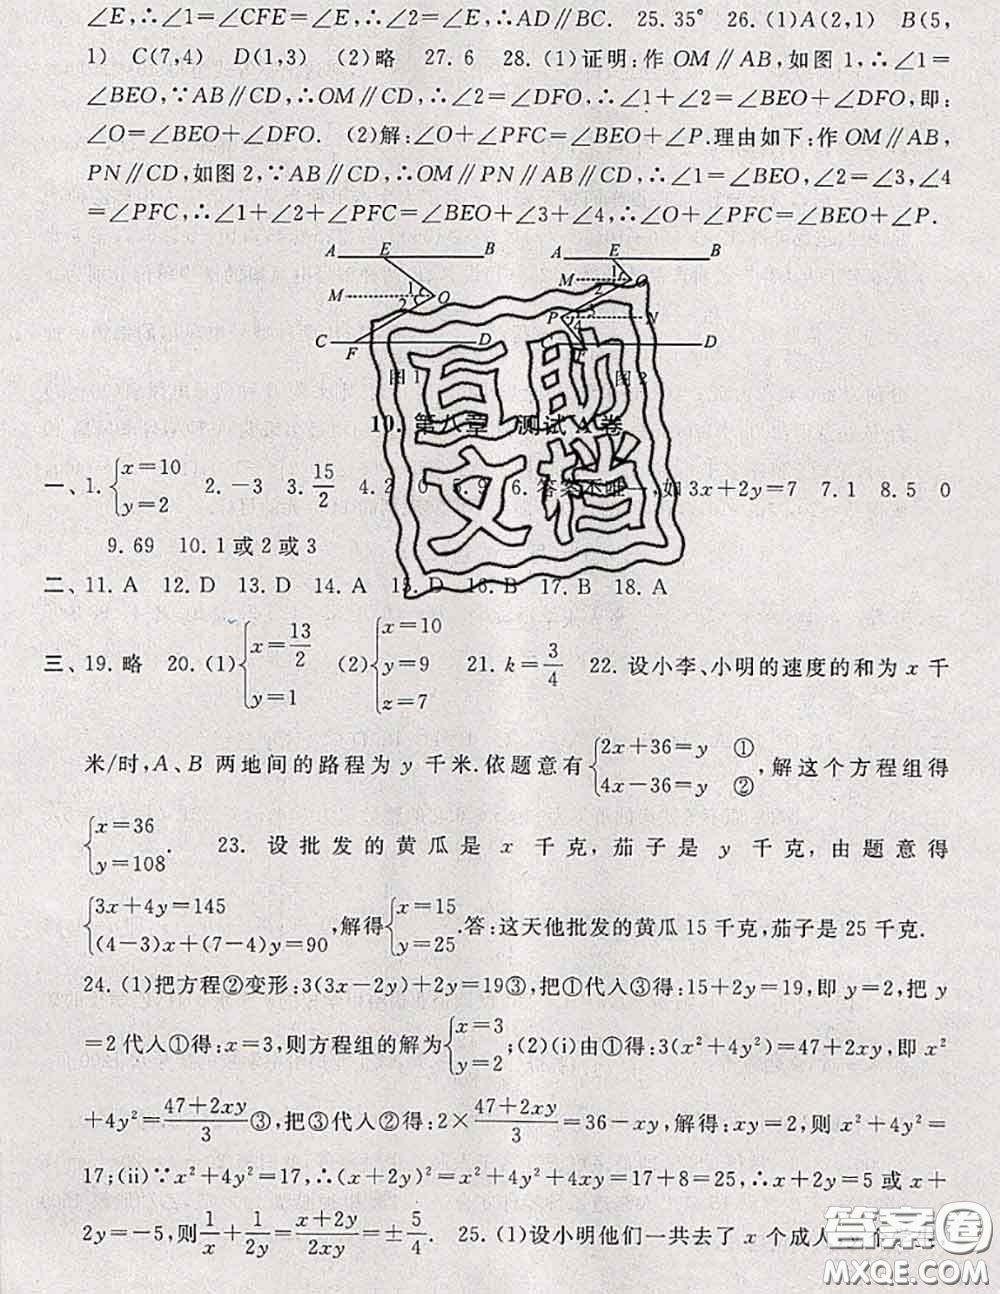 ∠E,∴∠1=∠CFE=∠E,∴∠1=∠2=∠E,∴AD∥BC. 25.35° 26.(1)A(2,1) B(5,
1) C(7,4) D(1,3) (2)略 27.6 28.(1)证明:作OM∥AB,如图1,∴∠1=
∠BEO,∵AB∥CD,∴OM∥CD,∴∠2=∠DFO,∴∠1+∠2=∠BEO+∠DFO,即:
∠O=∠BEO+∠DFO. (2)解:∠O+∠PFC=∠BEO+∠P.理由如下:作OM∥AB,
PN∥CD,如图2,∵AB∥CD,∴OM∥PN∥AB∥CD,∴∠1=∠BEO,∠2=∠3,∠4
=∠PFC,∴∠1+∠2+∠PFC=∠BEO+∠3+∠4,∴∠O+∠PFC=∠BEO+∠P.
A E B
M 1 2 O
C F D
图1
A E B
M 1 2 O
P 3 4 N
D
图2
10. 第八章 测试A卷
一、1.{x=10 y=2 2.-3 3.15/2 4.2 0 5.9 6.答案不唯一,如3x+2y=7 7.1 8.5 0
9.69 10.1或2或3
二、11.A 12.D 13.D 14.A 15.D 16.B 17.B 18.A
三、19.略 20.(1){x=13/2 y=1 (2){x=10 y=9 z=7 21.k=3/4 22.设小李、小明的速度的和为x千
米/时,A、B两地间的路程为y千米.依题意有{2x+36=y ① 4x-36=y ②,解这个方程组得
{x=36 y=108. 23.设批发的黄瓜是x千克,茄子是y千克,由题意得
{3x+4y=145 (4-3)x+(7-4)y=90,解得{x=15 y=25.答:这天他批发的黄瓜15千克,茄子是25千克.
24.(1)把方程②变形:3(3x-2y)+2y=19③,把①代人③得:15+2y=19,即y=2,把y
=2代人①得:x=3,则方程组的解为{x=3 y=2;(2)(i)由①得:3(x²+4y²)=47+2xy,即x²
+4y²=47+2xy/3③,把③代人②得:2×47+2xy/3=36-xy,解得:xy=2,则x²+4y²=
17;(ii)∵x²+4y²=17,∴(x+2y)²=x²+4y²+4xy=17+8=25,∴x+2y=5或x+
2y=-5,则1/x+1/2y=x+2y/2xy=±5/4. 25.(1)设小明他们一共去了x个成人,y个
互助
文档
答案卷
MXQE.COM